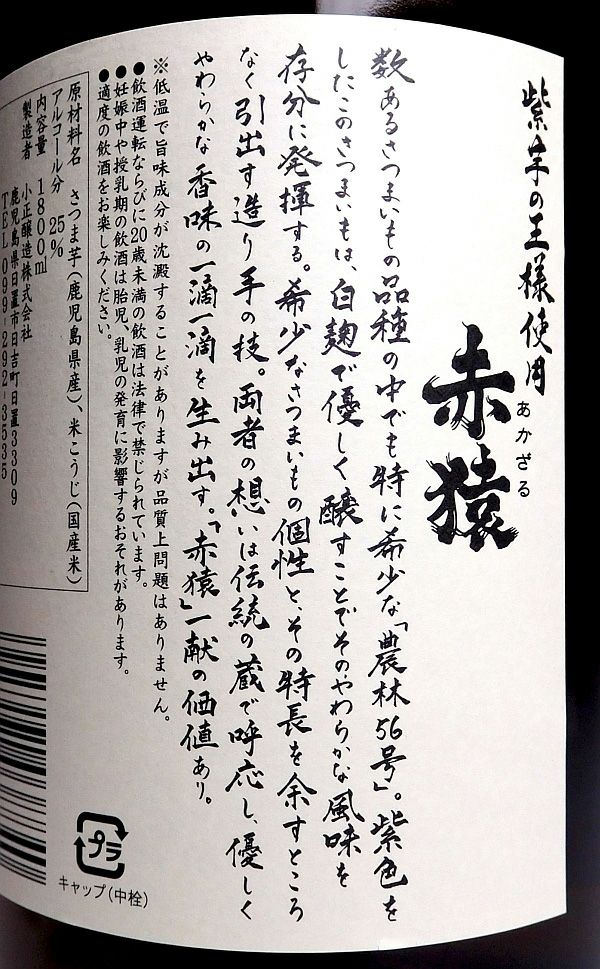 紫芋の王様使用
赤猿
あかざる
数あるさつまいもの品種の中でも特に希少な「農林56号」。紫色を
したこのさつまいもは、白麹で優しく醸すことでそのやわらかな風味を
存分に発揮する。希少なさつまいもの個性と、その特長を余すところ
なく引出す造り手の技。両者の想いは伝統の蔵で呼応し、優しく
やわらかな香味の一滴一滴を生み出す。「赤猿」一献の価値あり。
※低温で旨味成分が沈澱することがありますが品質上問題はありません。
●飲酒運転ならびに20歳未満の飲酒は法律で禁じられています。
●妊娠中や授乳期の飲酒は胎児、乳児の発育に影響するおそれがあります。
●適度の飲酒をお楽しみください。
原材料名 さつま芋(鹿児島県産)、米こうじ(国産米)
アルコール分 25%
内容量 1800ml
製造者 小正醸造株式会社
鹿児島県日置市日吉町日置3309
TEL099-292-3535
プラ
キャップ(中栓)